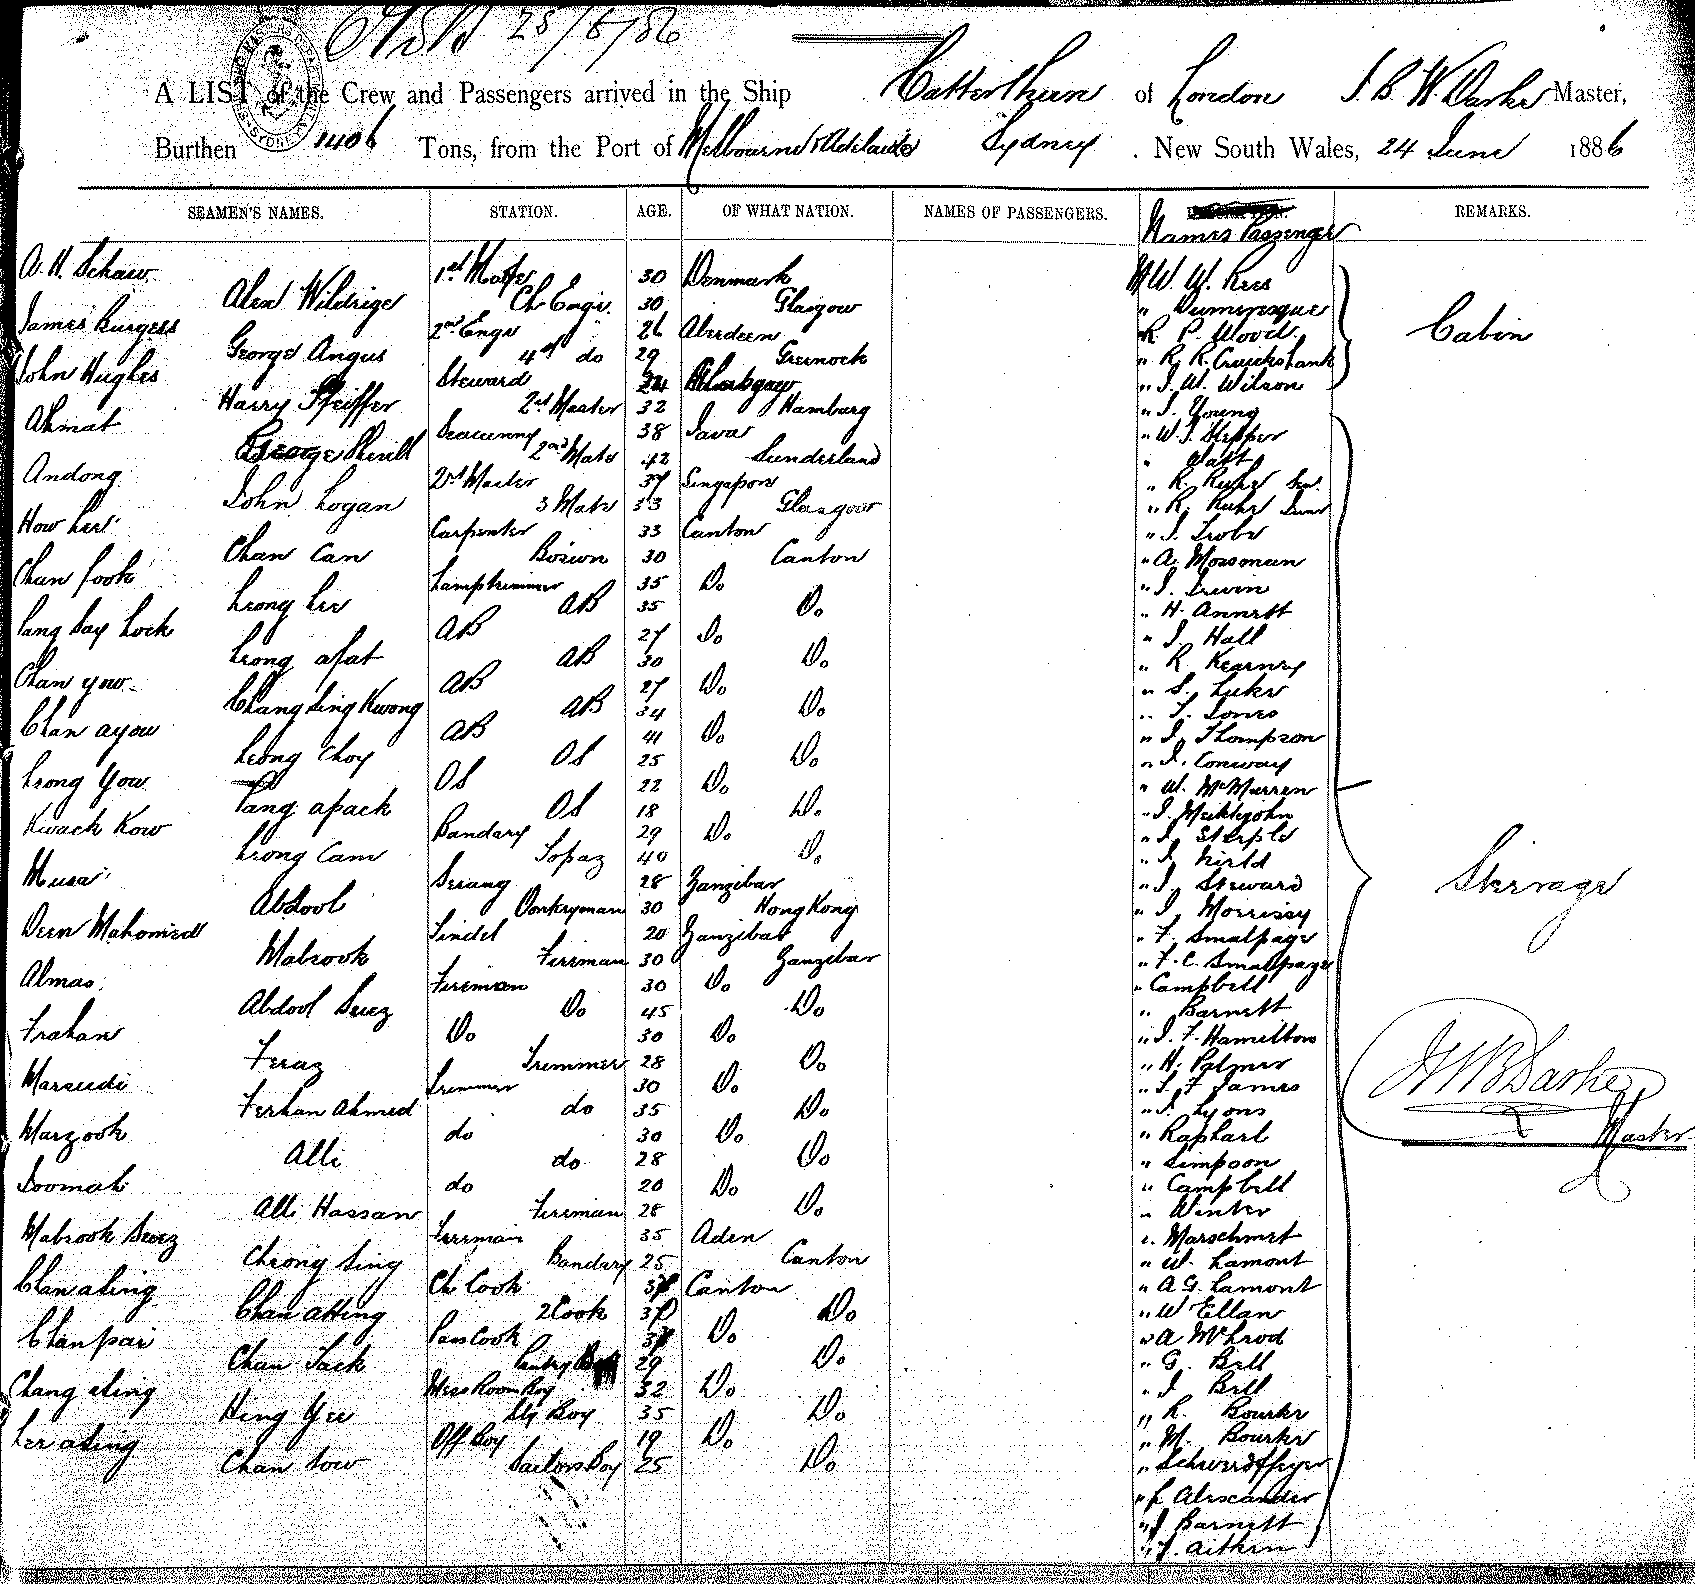 25/6/86
A LIST of the Crew and Passengers arrived in the Ship Catterthun of London J. B. W. Darke Master,
Burthen 1406 Tons, from the Port of Melbourne & Adelaide Sydney . New South Wales, 24 June 1886
SEAMEN'S NAMES. STATION. AGE. OF WHAT NATION. NAMES OF PASSENGERS. REMARKS.
Names Passenger
A. H. Schaw 1st Mate 30 Denmark
Alex Wildrige Ch Engr. 30 Glasgow
James Burgess 2nd Engr 26 Aberdeen
George Angus 4th do 29 Greenock
John Hughes Steward
Harry Pfeiffer 2nd Master 32 Hamburg
Ahmat Seacunny 38 Java
George Sherill 2nd Mate 42 Sunderland
Andong 2nd Master 37 Singapore
John Logan 3 Mate 33 Glasgow
How Lee Carpenter 33 Canton
Chan Can Boswn 30 Canton
Chan fook Lamptrimmer 35 Do
Leong Lee AB 35 Do
Pang Say Lock AB 27 Do
Leong afat AB 30 Do
Chan yow AB 27 Do
Chang Sing Kwong AB 34 Do
Chan ayow AB 41 Do
Leong Choy OS 25 Do
Leong Yow OS 22 Do
Pang apack OS 18 Do
Kwack Kow Bandary 29 Do
Leong Cam Topaz 40 Do
Musa Serang 28 Zanzibar
Abdool Donkeyman 30 Hong Kong
Deen Mahomed Tindel 20 Zanzibar
Mabrook Fireman 30 Zanzibar
Almas Fireman 30 Do
Abdool Seez Do 45 Do
Frahan Do 30 Do
Feraz Trimmer 28 Do
Marsudi Trimmer 30 Do
Ferhan Ahmed do 35 Do
Marzook do 30 Do
Alli do 28 Do
Soomah do 20 Do
Alli Hassan Fireman 28 Do
Mabrook Seez Fireman 35 Aden
Cheong Sing Bandary 25 Canton
Chan ating Ch Cook 37 Canton
Chan atting 2 Cook 37 Do
Chan pai Pass Cook 37 Do
Chan Jack Pantry 29 Do
Chang ating Mess Room Boy 32 Do
Hing Yee Boy 35 Do
Lee ating Off Boy 19 Do
Chan Sow Sailors Boy 25 Do
W. W. Rees
" Dumeresque
R P. Wood
" R, R. Cruickshank
" J. W. Wilson
Cabin
" J. Young
" W. J. Stepper
" Watt
" R. Ruhe Sen.
" R. Ruhe Junr
" J. Trobe
" A. Mossman
" J. Irwin
" H. Annett
" J. Hall
" R Kearney
" S. Luke
" T. Jones
" J. Thompson
" J. Conway
" W. McMurren
" J. Meiklejohn
" J. Steeple
" J. Nield
" J. Steward
" J. Morrissy
" F. Smalpage
" F. C. Smalpage
" Campbell
" Barnett
" J. F. Hamilton
" H. Palmer
" T. F James
" J. Lyons
" Raphael
" Simpson
" Campbell
" Winter
" Marschmet
" W. Lamont
" A G. Lamont
" W Ellan
" A McLeod
" G. Bell
" J Bell
" R. Bourke
" M. Bourke
" Schwerdtfeger
" L Alexander
" J Barnett
" J. Aitken
Steerage
J W B Darke
Master